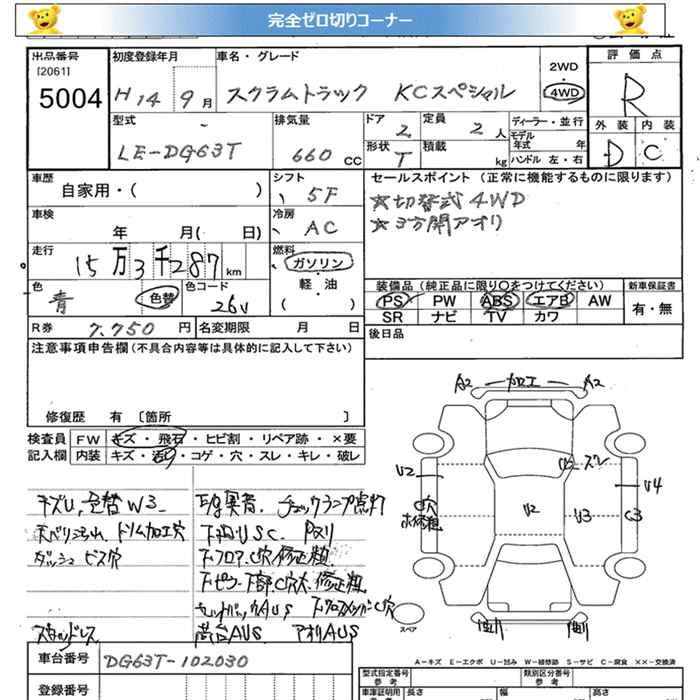 完全ゼロ切りコーナー
出品番号
[2061]
5004
初度登録年月
H14 9月
車名・グレード
スクラムトラック KCスペシャル
2WD
・
4WD
評価点
R
外装 内装
D C
型式
LE-DG63T
排気量
660 CC
ドア
2
定員
2人
形状
T
積載
kg
ディーラー・並行
モデル年式 年
ハンドル 左・右
車歴
自家用・( )
シフト
5F
セールスポイント (正常に機能するものに限ります)
☆切替式4WD
☆3方開アオリ
車検
年 月( 日)
冷房
AC
走行
15万3千287km
燃料
ガソリン
・
軽・油
( )
色
青
色替
色コード
26V
装備品 (純正品に限り〇をつけてください)
PS PW ABS エアB AW
SR ナビ TV カワ
新車保証書
有・無
R券
7.750円
名変期限 月 日
後日品
注意事項申告欄(不具合内容等は具体的に記入して下さい)
修復歴 有 〔箇所 〕
検査員記入欄
FW キズ・飛石・ヒビ割・リペア跡・×要
内装 キズ・汚レ・コゲ・穴・スレ・キレ・破レ
A2 加工 A2
U2
U4
C穴
U2
U3
C3
キズU,色替W3
チェックランプ点灯
ドリム加工穴
下廻りUSC
ダッシュ ビス穴
下フロアC穴修正有
荷台AUS アオリAUS
スペア
車台番号
DG63T-102030
登録番号
A−キズ E−エクボ U−凹み W−補修跡 S−サビ C−腐食 ××−交換済
型式指定番号
参考
類別区分番号
参考
車庫証明用
参考
長さ
幅
高さ